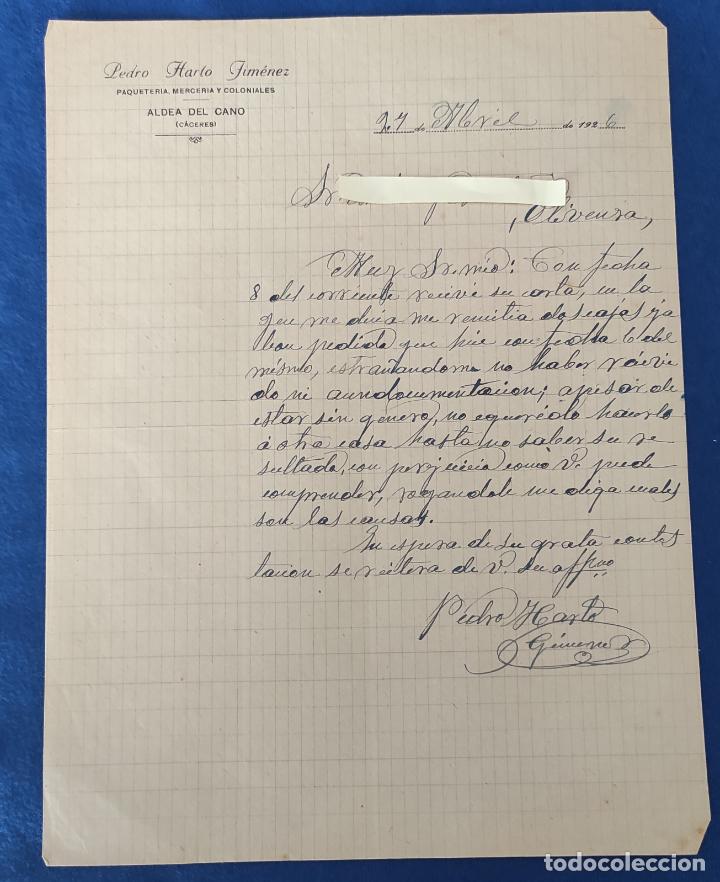 Pedro Harto Jiménez
PAQUETERIA, MERCERIA Y COLONIALES
ALDEA DEL CANO
(CÁCERES)
27 de Abril de 1926
Sr.
Olivenza,
Muy Sr. mío: Con fecha
8 del corriente recivé su carta, en la
que me decia me remitia dos cajas ja
bon pedido que hice con fecha 6 del
mismo, estrañandome no haber recivi
do ni aun documentacion; apesar de
estar sin género, no e querido hacerlo
á otra casa hasta no saber su re
sultado, con perjuicio como V. puede
comprender, rogandole me diga cuales
son las causas.
En espera de su grata contes
tacion se reitera de V. su affmo
Pedro Harto
Gimenez
todocoleccion
todocoleccion.net